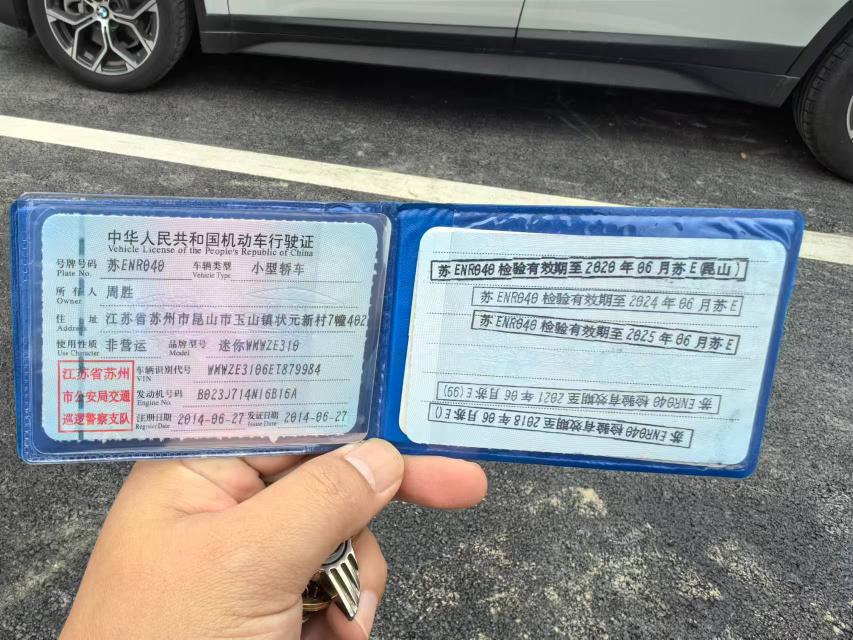 中华人民共和国机动车行驶证
Vehicle License of the People's Republic of China
号牌号码 苏ENR040 车辆类型 小型轿车
Plate No. Vehicle Type
所有人 周胜
Owner
住址 江苏省苏州市昆山市玉山镇状元新村7幢402
Address
使用性质 非营运 品牌型号 迷你WMWZE310
Use Character Model
江苏省苏州
市公安局交通
巡逻警察支队
车辆识别代号 WMWZE3106ET879984
VIN
发动机号码 B023J714N16B16A
Engine No.
注册日期 2014-06-27 发证日期 2014-06-27
Register Date Issue Date
苏ENR040 检验有效期至2020年06月苏E(昆山)
苏ENR040 检验有效期至2024年06月苏E
苏ENR040 检验有效期至2025年06月苏E
苏ENR040 检验有效期至2021年06月苏E(99)
苏ENR040 检验有效期至2018年06月苏E()